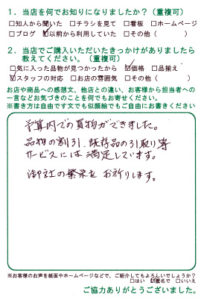 1. 当店を何でお知りになりましたか?(重複可)
□知人から聞いた □チラシを見て □看板 □ホームページ
□ブログ ☑以前から利用していた □その他( )
2. 当店でご購入いただいたきっかけがありましたら
教えてください。(重複可)
□気に入った品物が見つかったから ☑価格 □品揃え
☑スタッフの対応 □お店の雰囲気 □その他( )
お店や商品への感想文、他店との違い、お客様から担当者への
一言などお気づきのことを何でもお寄せください。
※書き方は自由です文でも似顔絵でもご自由にお書きください
予算内での買物ができました。
品物の割引、既存品の引取り等
サービスには満足しています。
御社の繁栄をお祈りします。
※お客様のお声を紙面やホームページなどで、ご紹介してもよろしいでしょうか?
□はい ☑匿名で □いいえ
ご協力ありがとうございました。